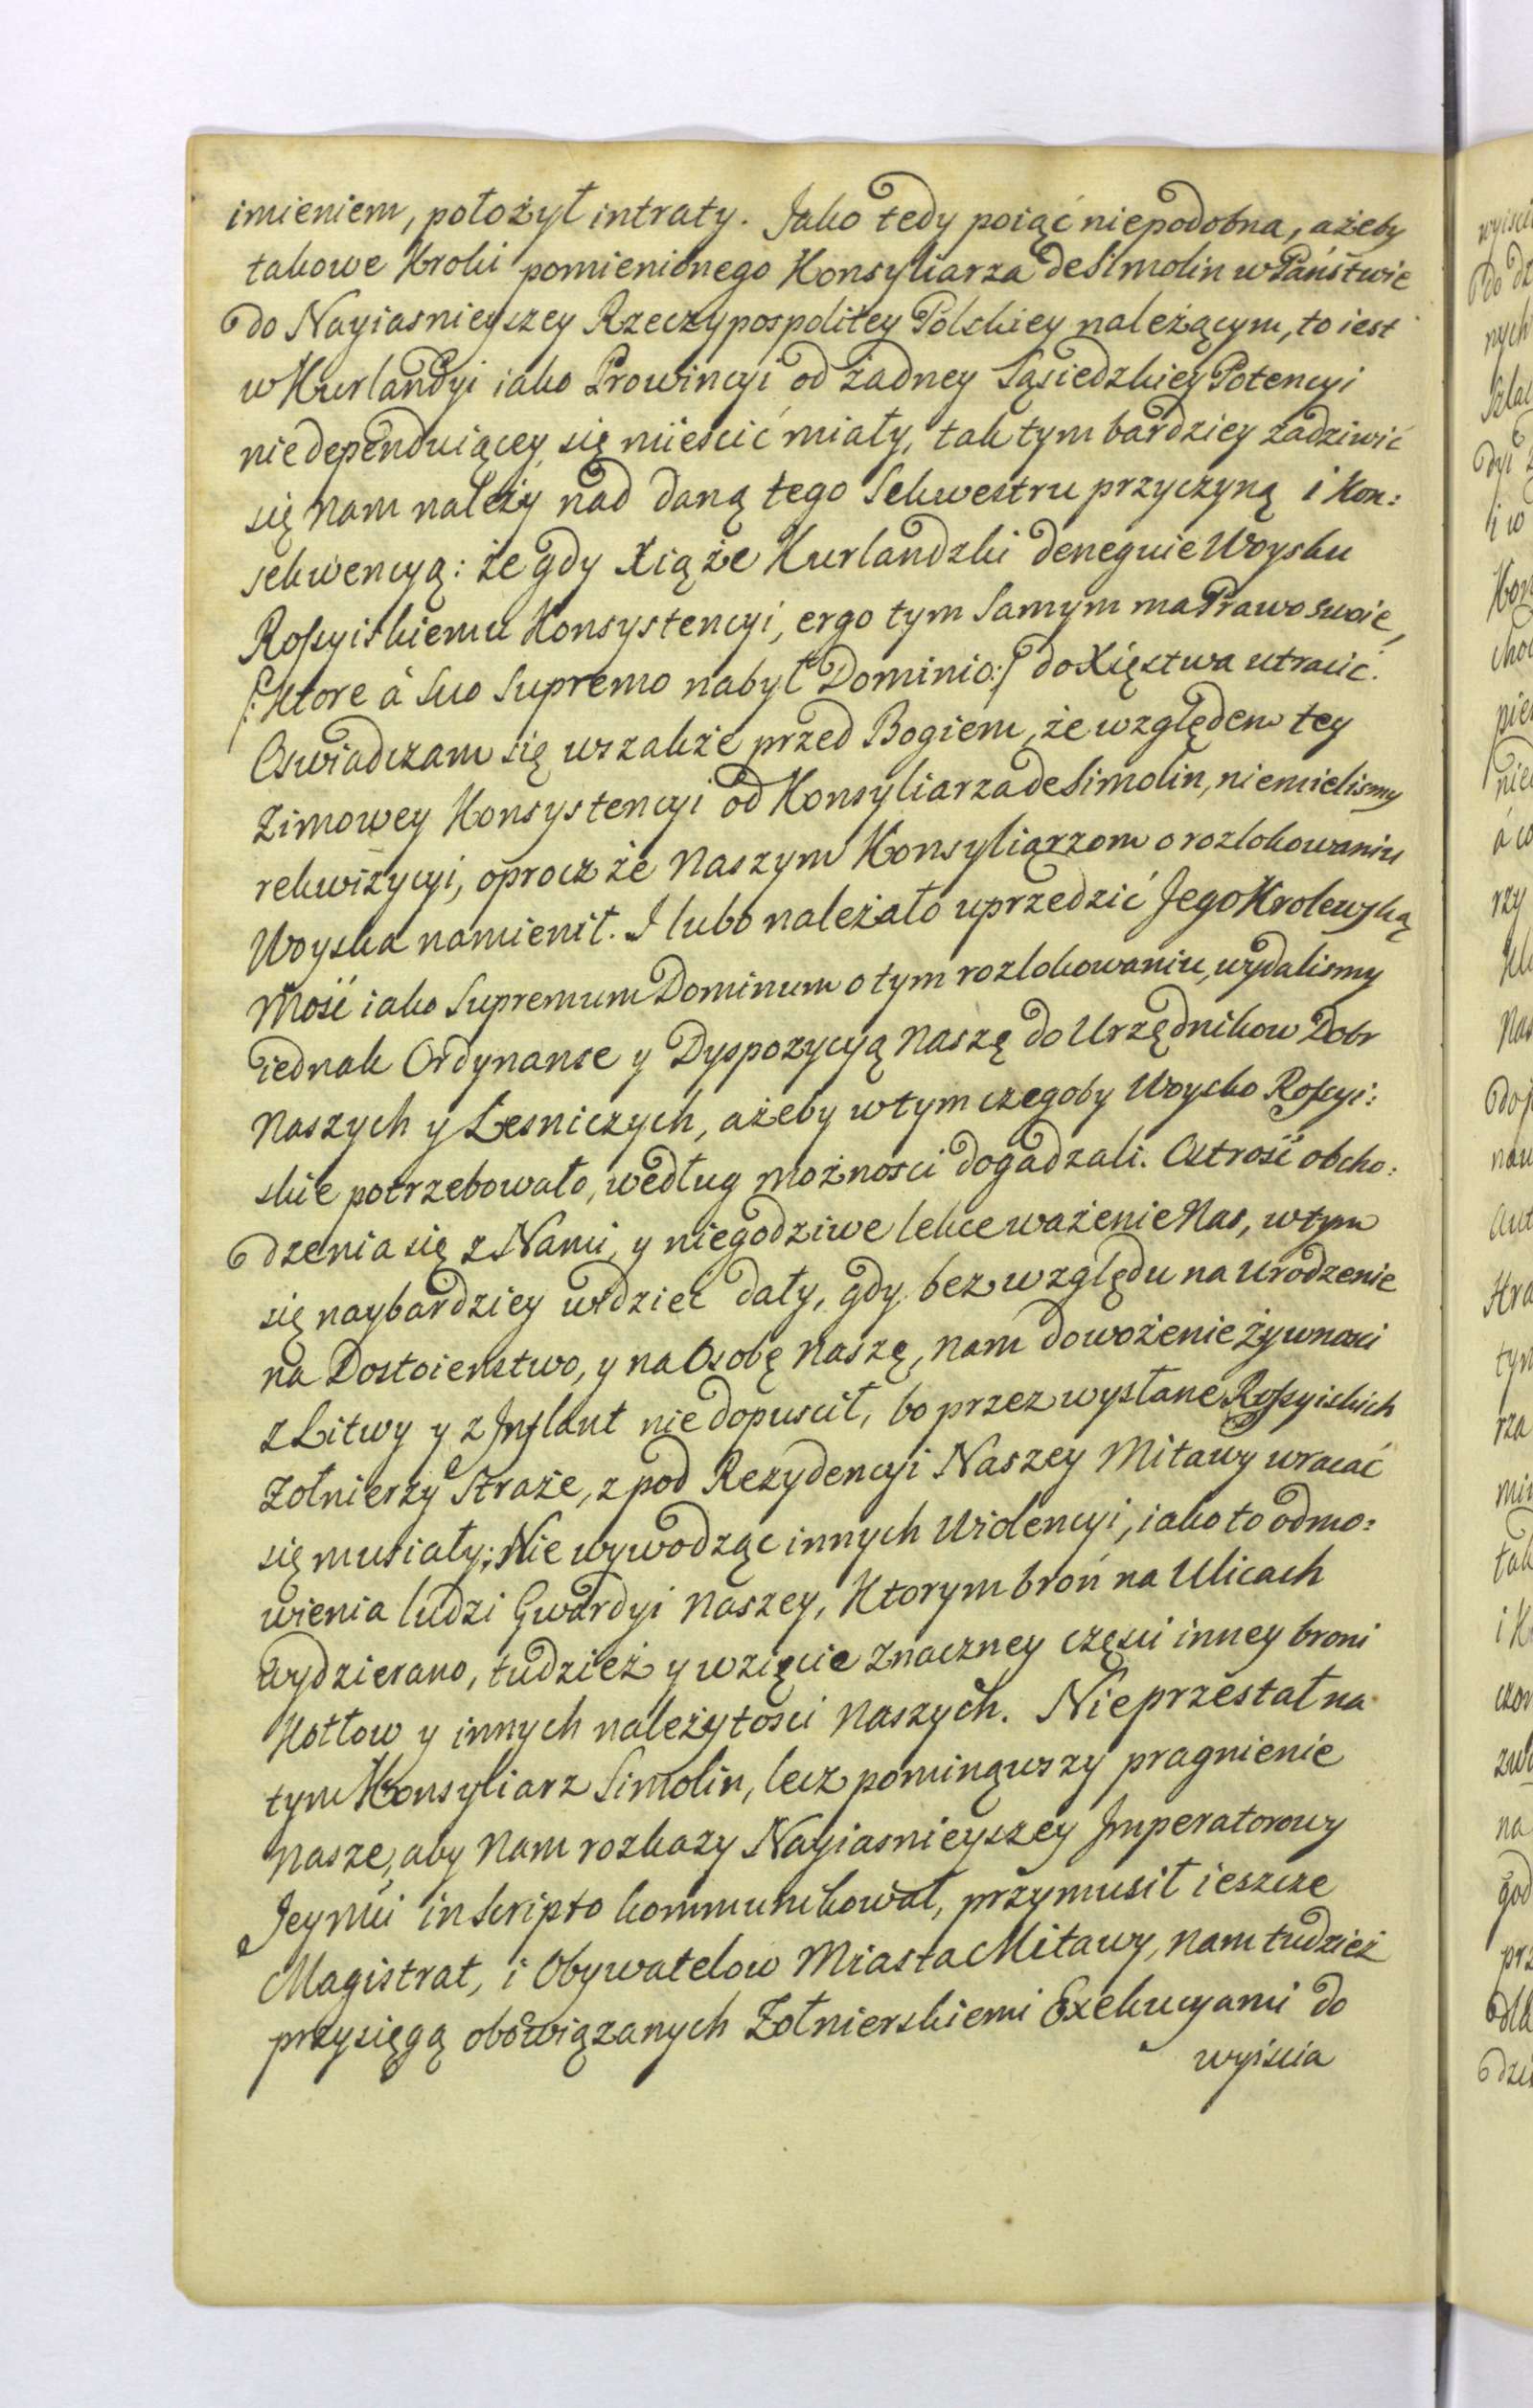 imieniem, położył intraty. Jako tedy poiąć niepodobna, ażeby
takowe Kroki pomienionego Konsyliarza de Simolin w Państwie
do Nayiasnieyszey Rzeczypospolitey Polskiey należącym, to iest
w Kurlandyi iako Prowincyi od żadney Sąsiedzkiey Potencyi
niedependuiącey się mieścić miały, tak tym bardziey zadziwić
się nam należy nad daną tego Sekwestru przyczyną i Kon:
sekwencyą: że gdy Xiąże Kurlandzki deneguie Woysku
Rossyiskiemu Konsystencyi, ergo tym Samym ma Prawo swoie,
/: Ktore à Suo Supremo nabył Dominio :/ do Xięstwa utracić.
Oswiadczam się wszakże przed Bogiem, że względem tey
Zimowey Konsystencyi od Konsyliarza de Simolin, niemielismy
rekwizycyi, oprocz że Naszym Konsyliarzom o rozlokowaniu
Woyska namienił. I lubo należało uprzedzić Jego Krolewską
Mość iako Supremum Dominum o tym rozlokowaniu, wydalismy
iednak Ordynanse y Dyspozycyą Naszę do Urzędnikow Dobr
Naszych y Lesniczych, ażeby w tym czegoby Woysko Rossyi:
skie potrzebowało, według możnosci dogadzali. Ostrość obcho:
dzenia się z Nami, y niegodziwe lekce ważenie Nas, w tym
się naybardziey widzieć dały, gdy bez względu na Urodzenie
na Dostoienstwo, y na Osobę Naszę, nam dowożenie żywnosci
z Litwy y z Inflant nie dopuscił, bo przez wysłane Rossyiskich
Zołnierzy Straże, z pod Rezydencyi Naszey Mitawy wracać
się musiały; Nie wywodząc innych Wiolencyi, iako to odmo:
wienia ludzi Gwardyi Naszey, Ktorym broń na Ulicach
wydzierano, tudzież y wzięcie znaczney części inney broni
Kotłow y innych należytosci Naszych. Nie przestał na
tym Konsyliarz Simolin, lecz pominąwszy pragnienie
Nasze, aby Nam rozkazy Nayiasnieyszey Imperatorowy
Jeymci in Scripto kommunikował, przymusił ieszcze
Magistrat, i Obywatelow Miasta Mitawy, nam tudzież
przysięgą obowiązanych Żołnierskiemi Exekucyami do
wyiscia